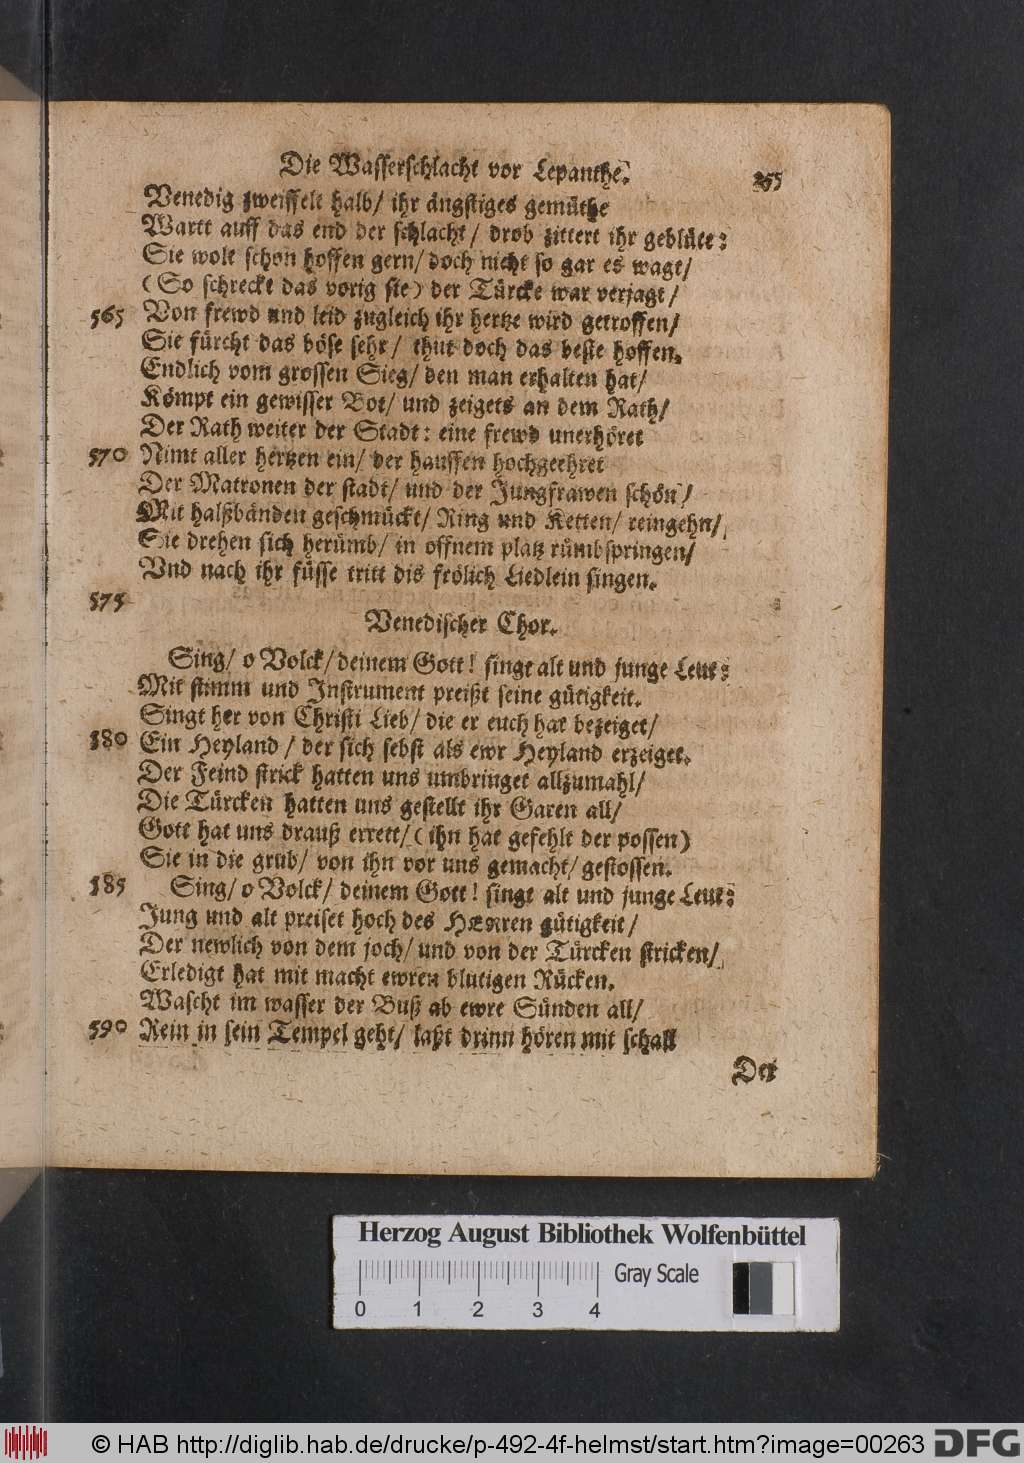 Die Wasserschlacht vor Lepanthe. 255
Venedig zweiffelt halb/ ihr ängstiges gemüthe
Wartt auff das end der schlacht/ drob zittert ihr geblüte:
Sie wolt schon hoffen gern/ doch nicht so gar es wagt/
(So schreckt das vorig sie) der Türcke war verjagt/
565 Von frewd und leid zugleich ihr hertze wird getroffen/
Sie fürcht das böse sehr/ thut doch das beste hoffen.
Endlich vom grossen Sieg/ den man erhalten hat/
Kömpt ein gewisser Bot/ und zeigets an dem Rath/
Der Rath weiter der Stadt: eine frewd unerhöret
570 Nimt aller hertzen ein/ der hauffen hochgeehret
Der Matronen der stadt/ und der Jungfrawen schön/
Mit halßbänden geschmückt/ Ring und Ketten/ reingehn/
Sie drehen sich herümb/ in offnem platz rümbspringen/
Vnd nach ihr füsse tritt dis frölich Liedlein singen.
575
Venedischer Chor.
Sing/ o Volck/ deinem Gott! singt alt und junge Leut:
Mit stimm und Instrument preißt seine gütigkeit.
Singt her von Christi Lieb/ die er euch hat bezeiget/
580 Ein Heyland/ der sich sebst als ewr Heyland erzeiget.
Der Feind strick hatten uns umbringet allzumahl/
Die Türcken hatten uns gestellt ihr Garen all/
Gott hat uns drauß errett/ (ihn hat gefehlt der possen)
Sie in die grub/ von ihn vor uns gemacht/ gestossen.
585 Sing/ o Volck/ deinem Gott! singt alt und junge Leut:
Jung und alt preiset hoch des HERREN gütigkeit/
Der newlich von dem joch/ und von der Türcken stricken/
Erledigt hat mit macht ewren blutigen Rücken.
Wascht im wasser der Buß ab ewre Sünden all/
590 Rein in sein Tempel geht/ laßt drinn hören mit schall
Der
Herzog August Bibliothek Wolfenbüttel
0 1 2 3 4 Gray Scale
© HAB http://diglib.hab.de/drucke/p-492-4f-helmst/start.htm?image=00263 DFG